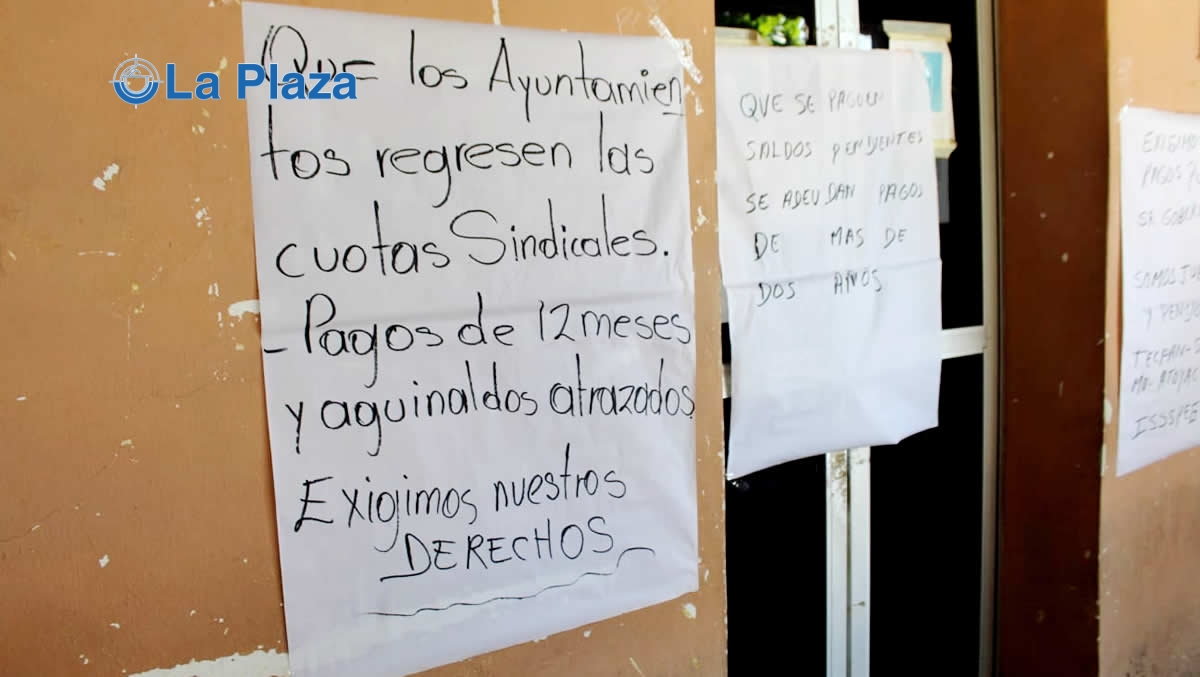 La Plaza
Que los Ayuntamien
tos regresen las
cuotas Sindicales.
- Pagos de 12 meses
y aguinaldos atrazados
Exigimos nuestros
DERECHOS
QUE SE PAGUEN
SALDOS PENDIENTES
SE ADEUDAN PAGOS
DE MAS DE
DOS AÑOS
PAGOS
SOMOS
Y
TECPAN-
ISSSPE